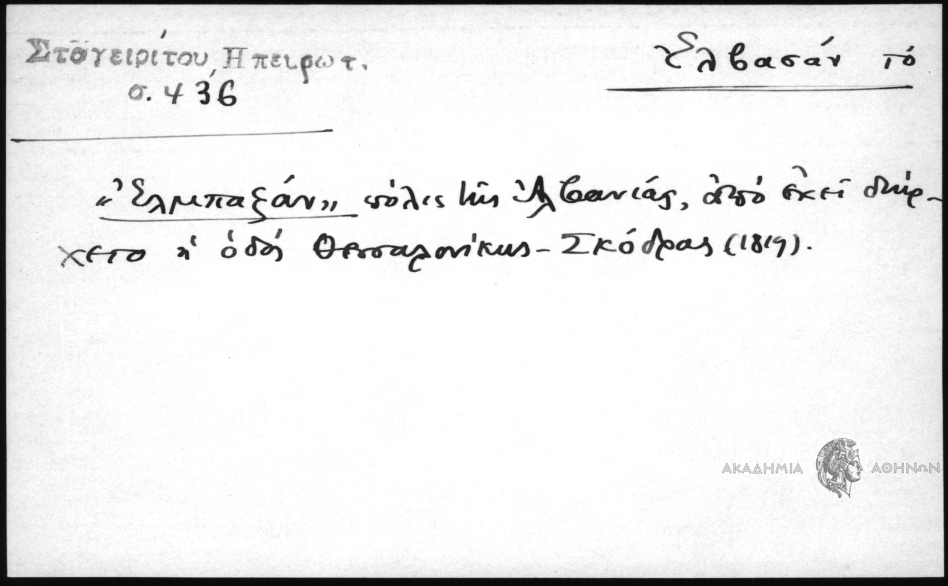 Σταγειρίτου Ηπειρωτ.
σ. 436
Ἐλβασάν τό
«Ἐλμπαξάν» πόλις τῆς Ἀλβανίας, ἀπό ἐκεῖ διήρ-
χετο ἡ ὁδός Θεσσαλονίκης - Σκόδρας (1819).
ΑΚΑΔΗΜΙΑ ΑΘΗΝΩΝ